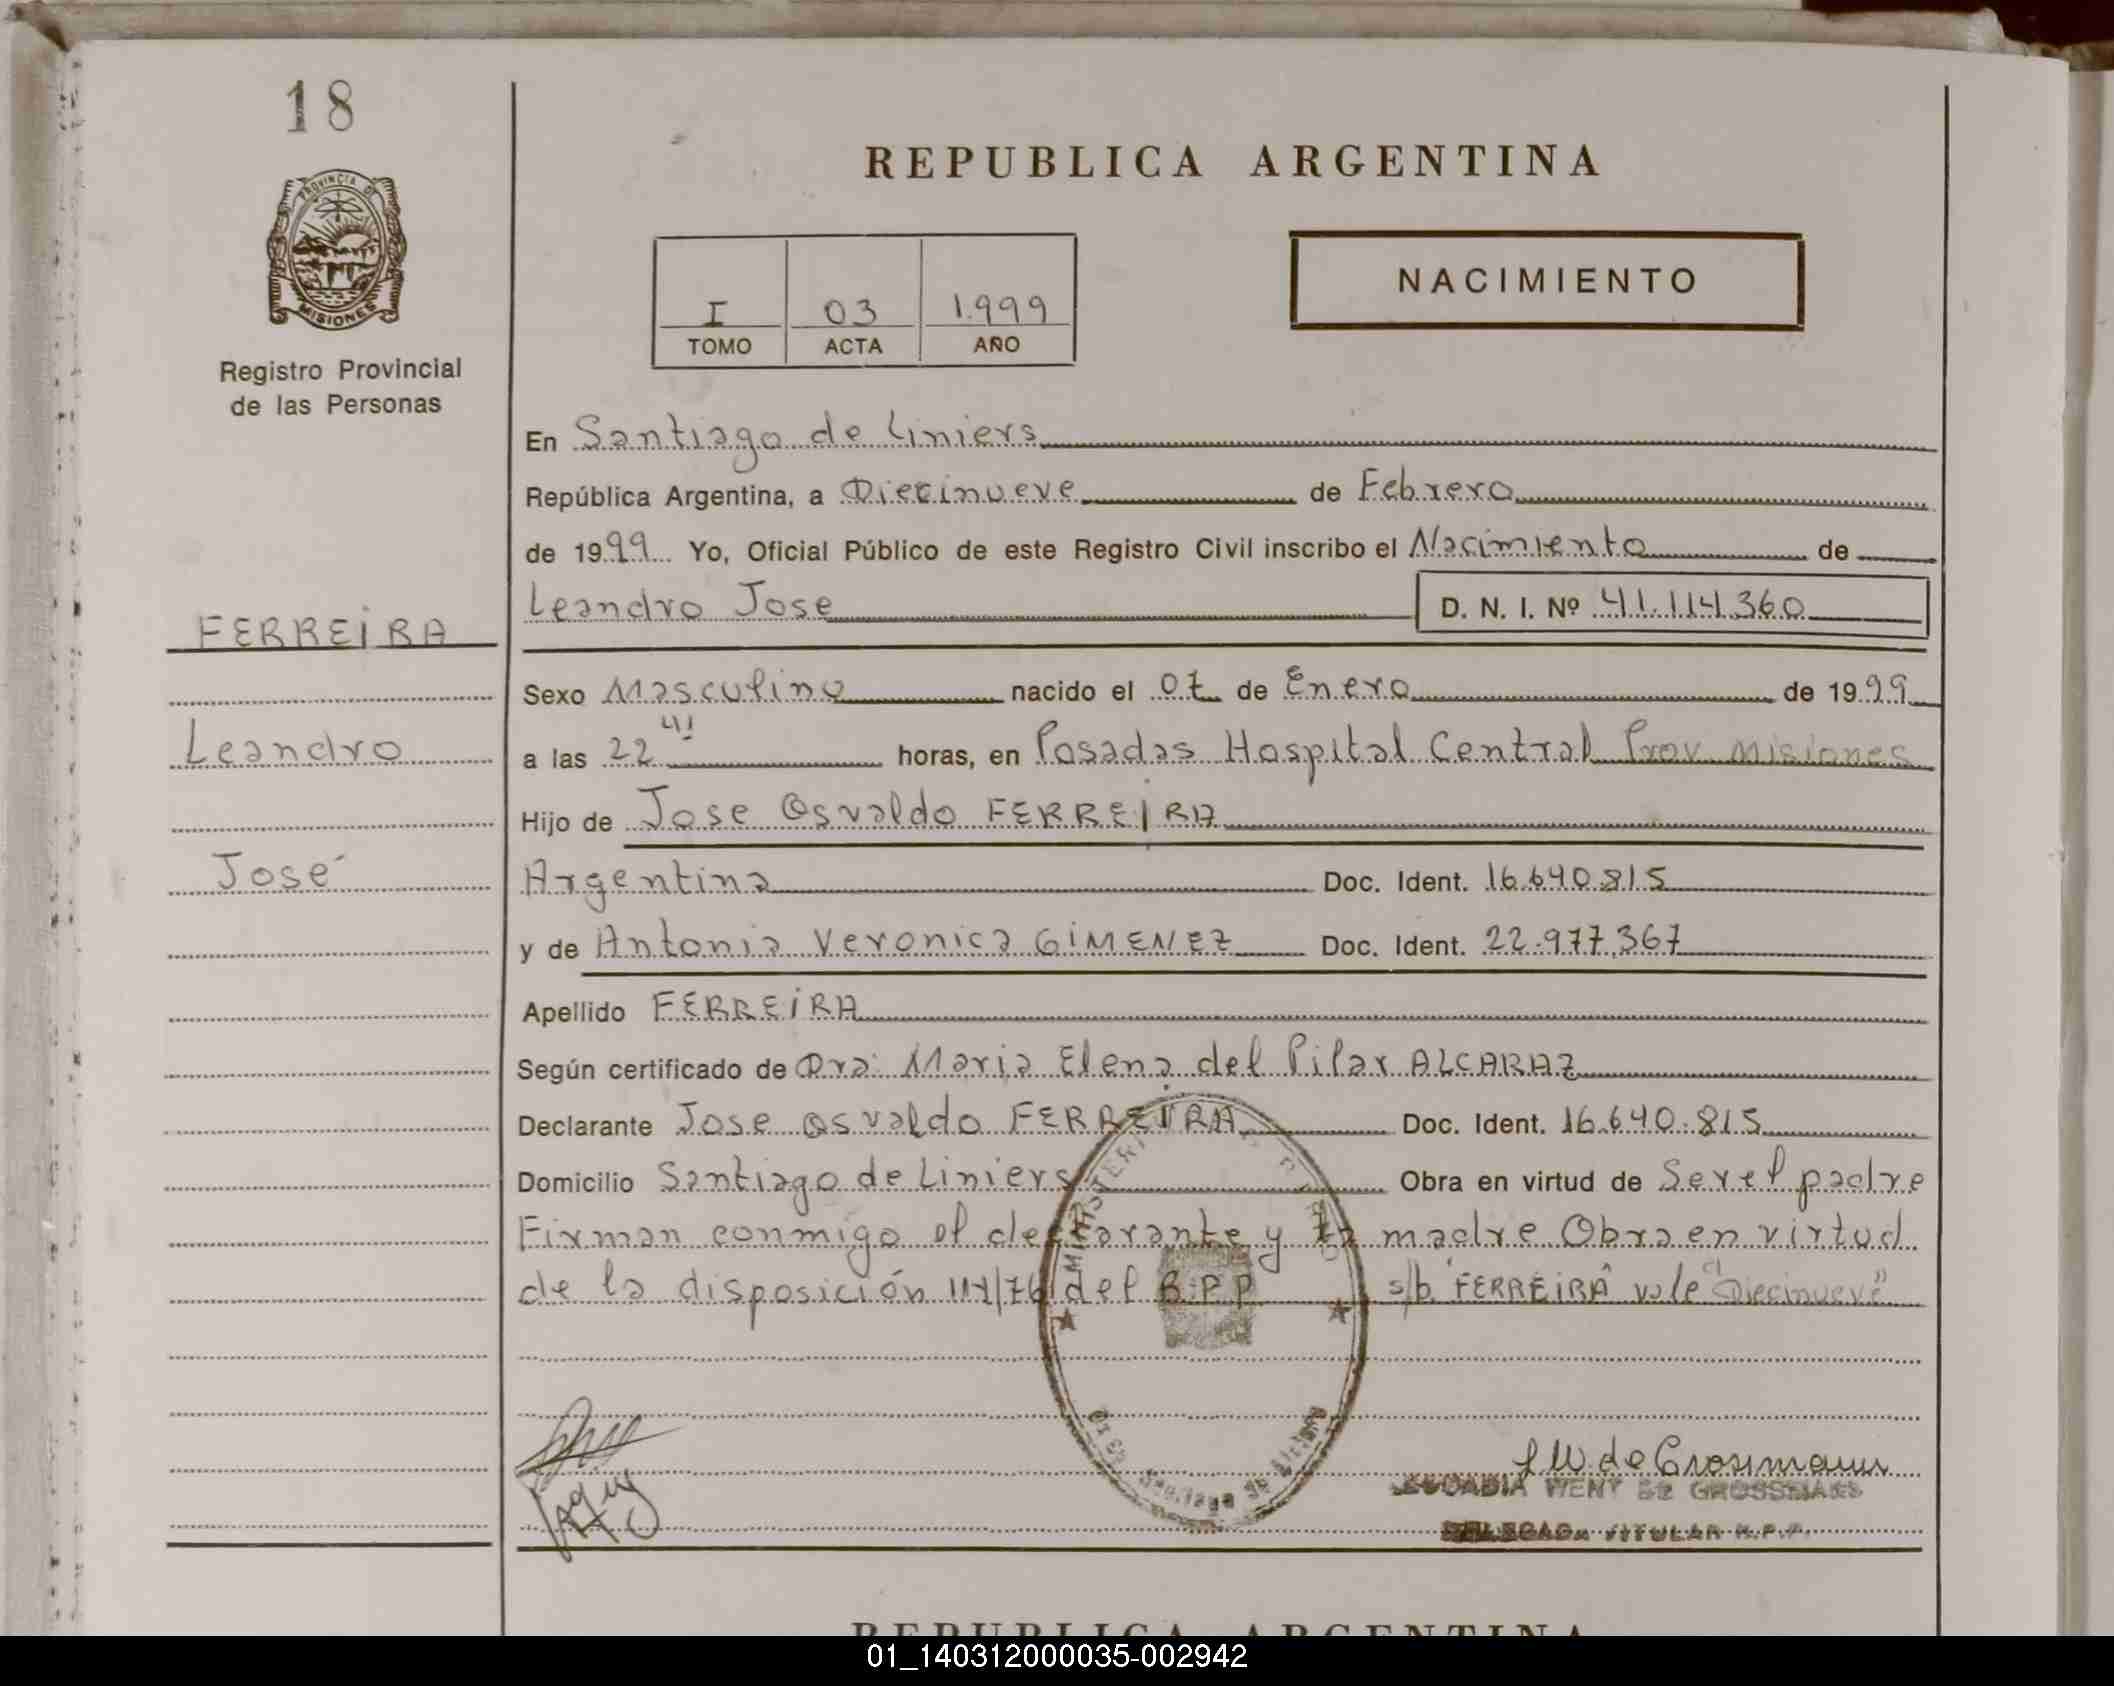 18
PROVINCIA DE
MISIONES
Registro Provincial
de las Personas
REPUBLICA ARGENTINA
I 03 1.999
TOMO ACTA AÑO
NACIMIENTO
En Santiago de Liniers
República Argentina, a Diecinueve de Febrero
de 1999 Yo, Oficial Público de este Registro Civil inscribo el Nacimiento de
Leandro Jose D. N. I. Nº 41.114.360
FERREIRA
Sexo Masculino nacido el 07 de Enero de 1999
Leandro
a las 22 41 horas, en Posadas Hospital Central Prov Misiones
Hijo de Jose Osvaldo FERREIRA
José
Argentina Doc. Ident. 16.640.815
y de Antonia Veronica GIMENEZ Doc. Ident. 22.977.367
Apellido FERREIRA
Según certificado de Dra: Maria Elena del Pilar ALCARAZ
Declarante Jose Osvaldo FERREIRA Doc. Ident. 16.640.815
Domicilio Santiago de Liniers Obra en virtud de Ser el padre
Firman conmigo el declarante y la madre Obra en virtud
de la disposición 114/76 del R.P.P s/b "FERREIRA" vale "Diecinueve"
MINISTERIO
Santiago de Liniers
L W de Grossmann
WENY DE GROSSMANN
DELEGADA TITULAR R.P.P.
REPUBLICA ARGENTINA
01_140312000035-002942